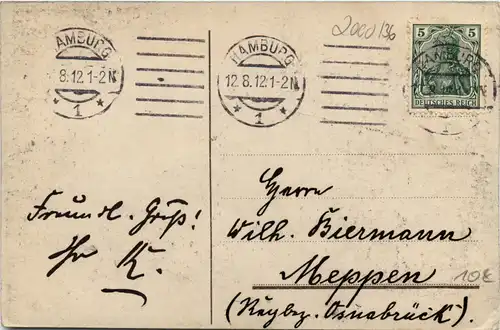 2000/36
HAMBURG
8.12.1-2N
* 1 *
HAMBURG
12.8.12.1-2N
* 1 *
5 5
DEUTSCHES REICH
HAMBURG
1
Freundl. Gruß!
Ihr K.
Herrn
Wilh. Biermann
Meppen
10€
(Regbez. Osnabrück).